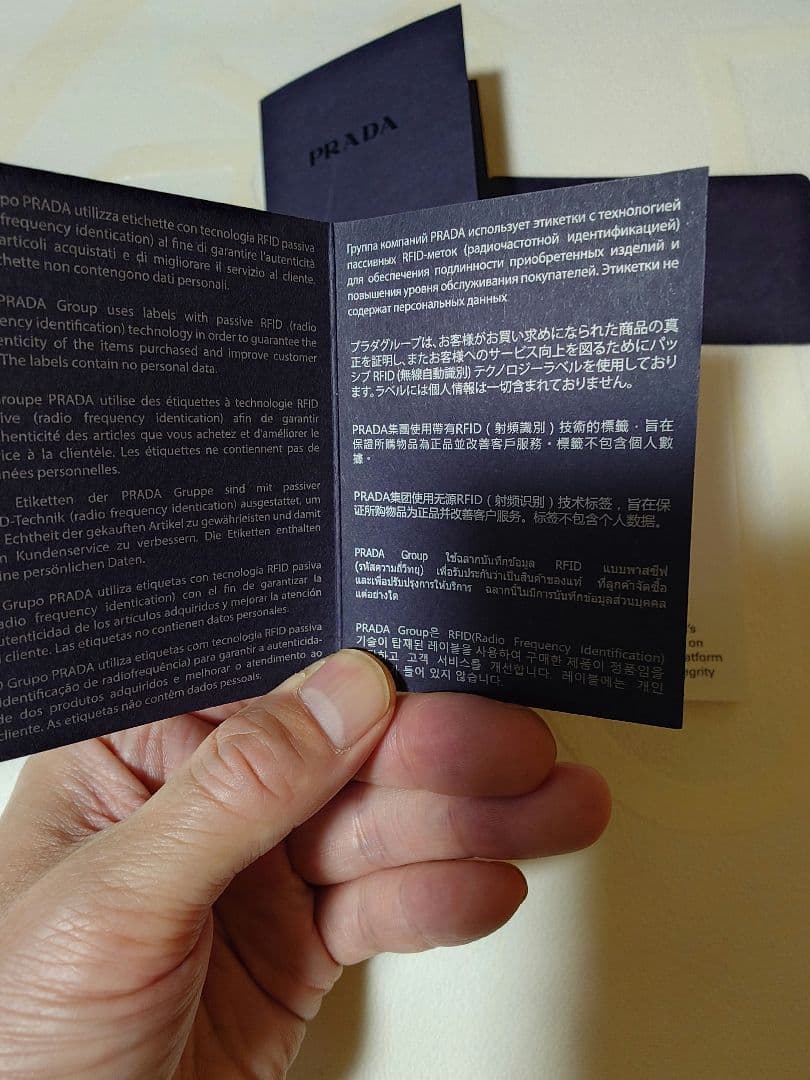 PRADA
po PRADA utilizza etichette con tecnologia RFID passiva
frequency identication) al fine di garantire l'autenticità
articoli acquistati e di migliorare il servizio al cliente.
chette non contengono dati personali.
PRADA Group uses labels with passive RFID (radio
ency identification) technology in order to guarantee the
enticity of the items purchased and improve customer
The labels contain no personal data.
roupe PRADA utilise des étiquettes à technologie RFID
ive (radio frequency identification) afin de garantir
henticité des articles que vous achetez et d'améliorer le
ice à la clientèle. Les étiquettes ne contiennent pas de
nées personnelles.
Etiketten der PRADA Gruppe sind mit passiver
D-Technik (radio frequency identication) ausgestattet, um
Echtheit der gekauften Artikel zu gewährleisten und damit
n Kundenservice zu verbessern. Die Etiketten enthalten
ine persönlichen Daten.
Grupo PRADA utiliza etiquetas con tecnología RFID pasiva
adio frequency identication) con el fin de garantizar la
utenticidad de los artículos adquiridos y mejorar la atención
l cliente. Las etiquetas no contienen datos personales.
O Grupo PRADA utiliza etiquetas com tecnologia RFID passiva
identificação de radiofrequência) para garantir a autenticida-
de dos produtos adquiridos e melhorar o atendimento ao
cliente. As etiquetas não contêm dados pessoais.
Группа компаний PRADA использует этикетки с технологией
пассивных RFID-меток (радиочастотной идентификацией)
для обеспечения подлинности приобретенных изделий и
повышения уровня обслуживания покупателей. Этикетки не
содержат персональных данных
プラダグループは、お客様がお買い求めになられた商品の真
正を証明し、またお客様へのサービス向上を図るためにパッ
シブ RFID (無線自動識別) テクノロジーラベルを使用しており
ます。ラベルには個人情報は一切含まれておりません。
PRADA集團使用帶有RFID（射頻識別）技術的標籤，旨在
保證所購物品為正品並改善客戶服務。標籤不包含個人數
據。
PRADA集团使用无源RFID（射频识别）技术标签，旨在保
证所购物品为正品并改善客户服务。标签不包含个人数据。
PRADA Group ใช้ฉลากบันทึกข้อมูล RFID แบบพาสซีฟ
(รหัสความถี่วิทยุ) เพื่อรับประกันว่าเป็นสินค้าของแท้ ที่ลูกค้าจัดซื้อ
และเพื่อปรับปรุงการให้บริการ ฉลากนี้ไม่มีการบันทึกข้อมูลส่วนบุคคล
แต่อย่างใด
PRADA Group은 RFID(Radio Frequency Identification)
기술이 탑재된 레이블을 사용하여 구매한 제품이 정품임을
하고 고객 서비스를 개선합니다. 레이블에는 개인
들어 있지 않습니다.
's
on
atform
egrity